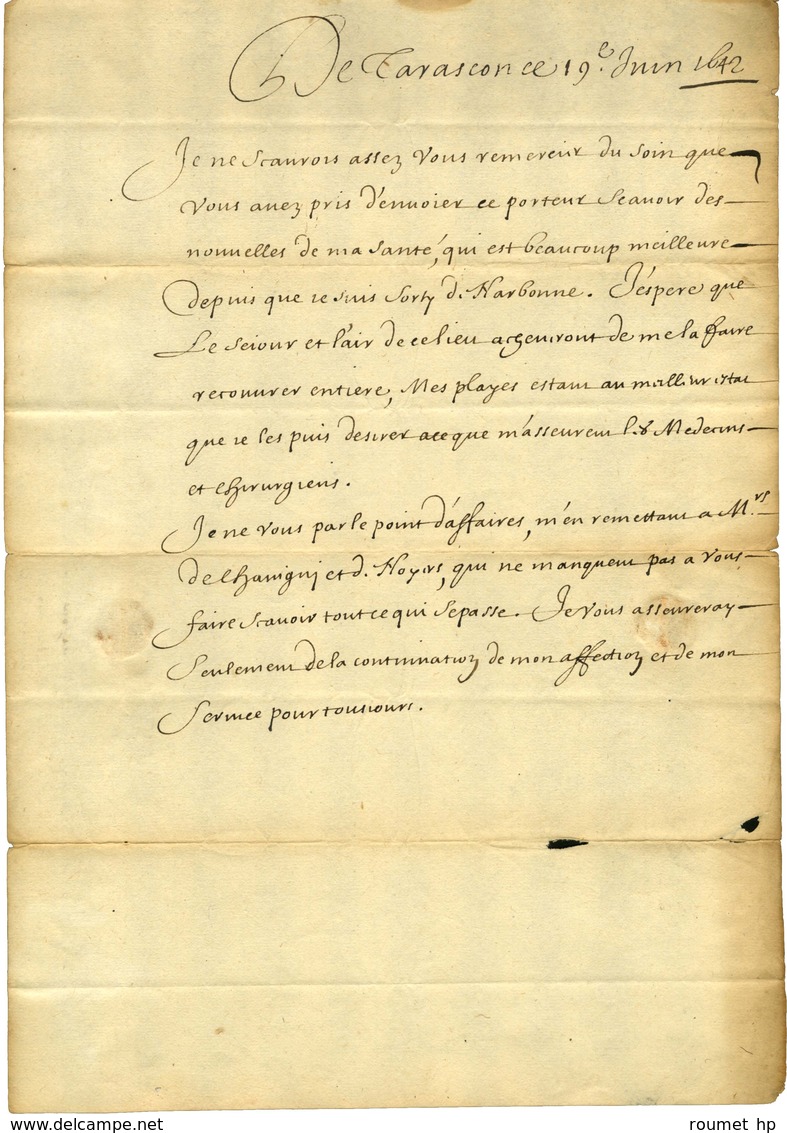 De Tarascon ce 19e. Juin 1642
Je ne scaurois assez vous remercier du soin que
vous avez pris d'envoier ce porteur scavoir des
nouvelles de ma santé, qui est beaucoup meilleure
depuis que ie suis sorty de Narbonne. J'espere que
Le seiour et l'air de ce lieu acheviront de me la faire
recouvrer entiere, Mes playes estant au meilleur estat
que ie les puis desirer a ce que m'asseurent les Medecins
et chirurgiens.
Je ne vous parle point d'affaires, m'en remettant a Mrs
de Chavigny et de Noyers, qui ne manquent pas a vous
faire scavoir tout ce qui se passe. Je vous asseureray
seulement de la continuation de mon affection et de mon
service pour tousiours.
roumet hp